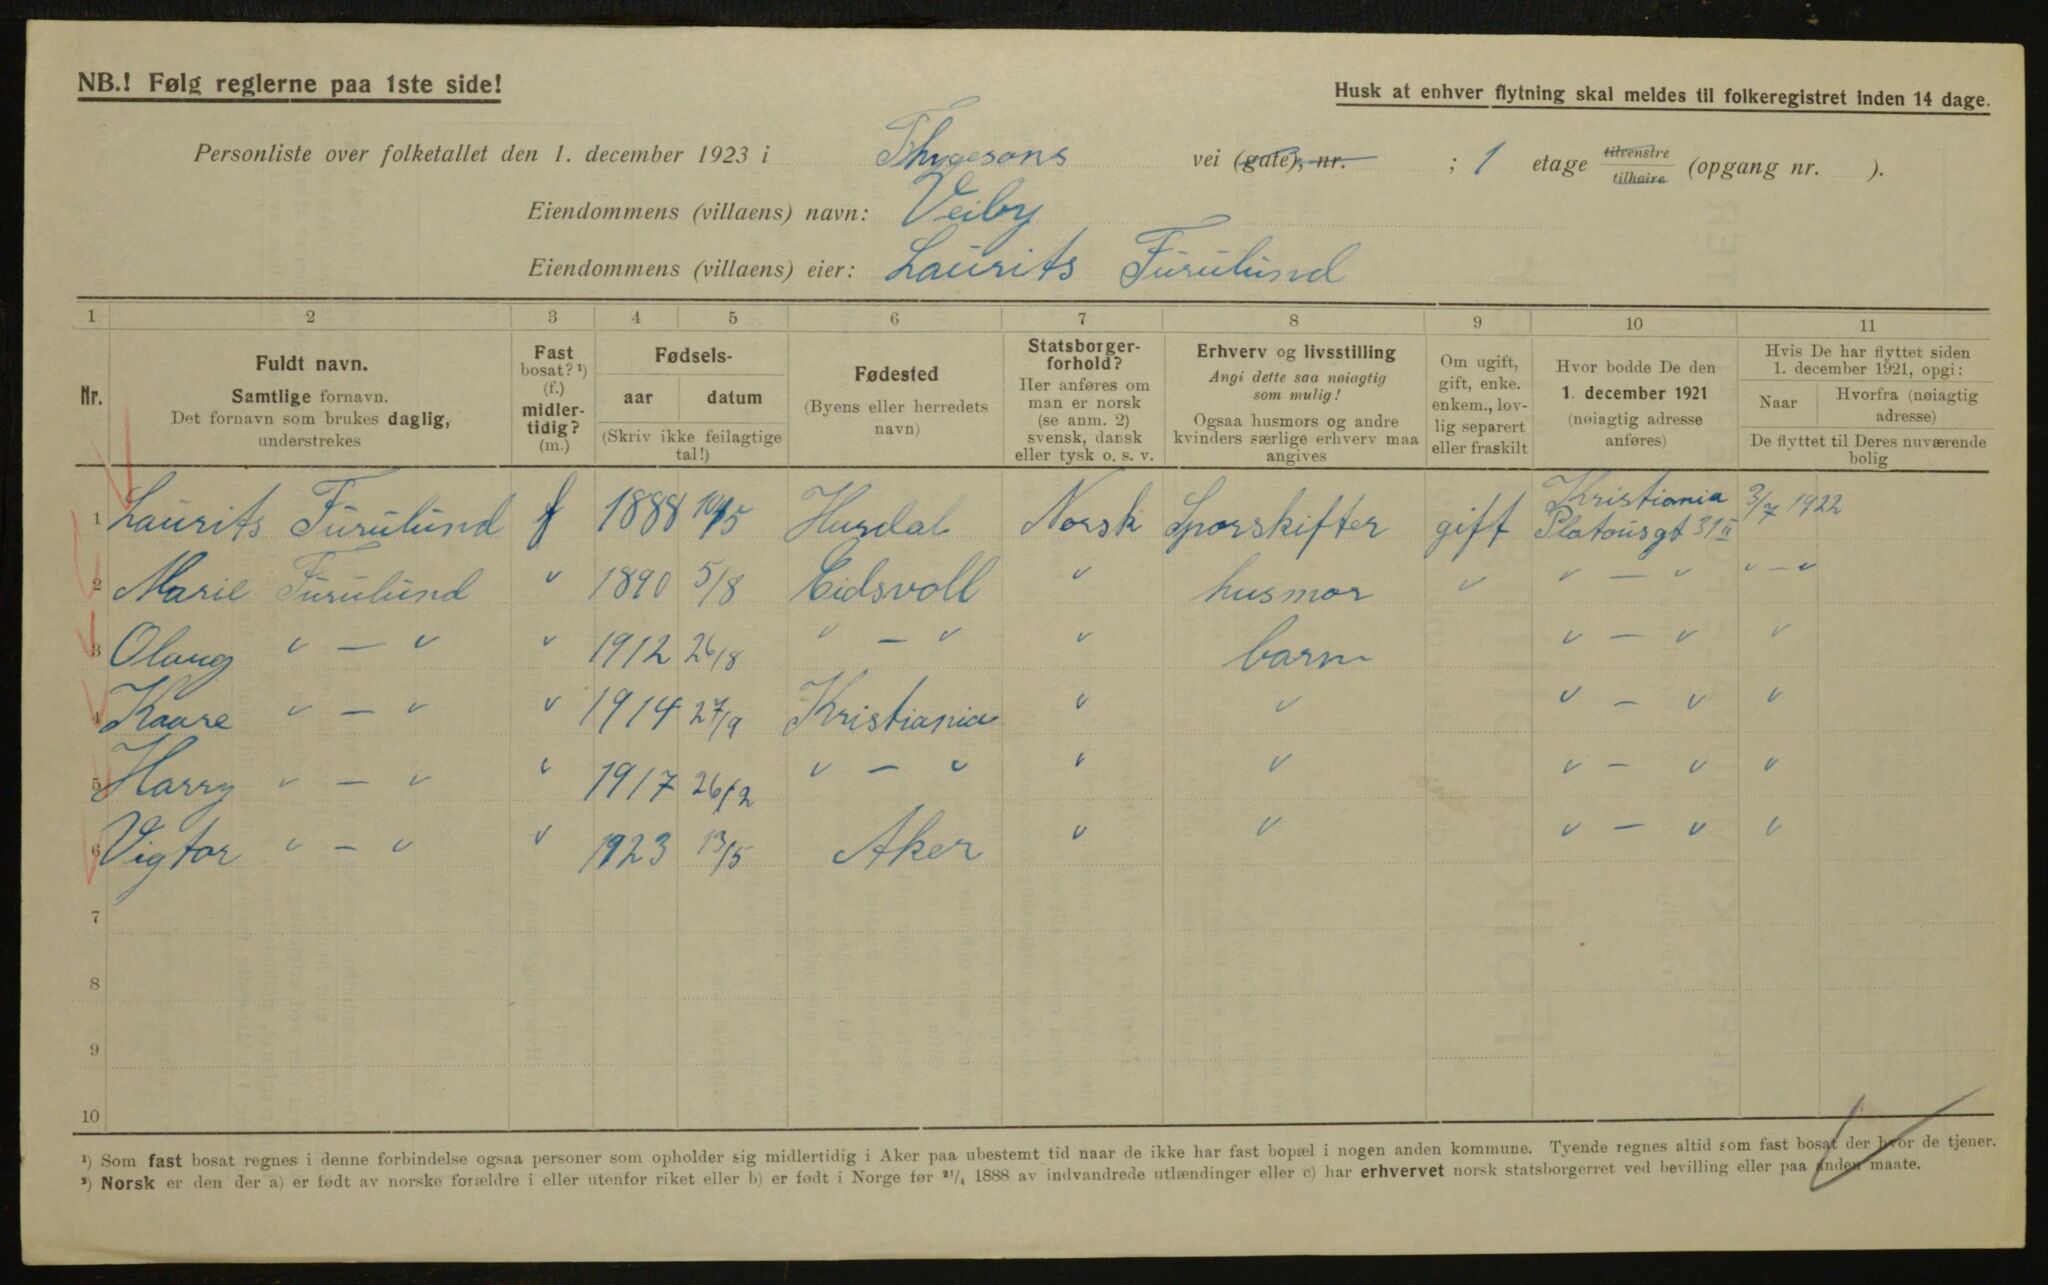 NB.! Følg reglerne paa 1ste side!
Husk at enhver flytning skal meldes til folkeregistret inden 14 dage.
Personliste over folketallet den 1. december 1923 i Thygesons vei (gate), nr. ; 1 etage tilvenstre tilhøire (opgang nr. ).
Eiendommens (villaens) navn: Veiby
Eiendommens (villaens) eier: Laurits Furulund
1 2 3 4 5 6 7 8 9 10 11
Nr.
Fuldt navn.
Samtlige fornavn.
Det fornavn som brukes daglig, understrekes
Fast bosat? ¹) (f.) midler-tidig? (m.)
Fødsels-
aar datum
(Skriv ikke feilagtige tal!)
Fødested
(Byens eller herredets navn)
Statsborger-forhold?
Her anføres om man er norsk (se anm. 2) svensk, dansk eller tysk o. s. v.
Erhverv og livsstilling
Angi dette saa nøiagtig som mulig!
Ogsaa husmors og andre kvinders særlige erhverv maa angives
Om ugift, gift, enke. enkem., lov-lig separert eller fraskilt
Hvor bodde De den 1. december 1921 (nøiagtig adresse anføres)
Hvis De har flyttet siden 1. december 1921, opgi:
Naar Hvorfra (nøiagtig adresse)
De flyttet til Deres nuværende bolig
1 Laurits Furulund f 1888 10/5 Hurdal Norsk Sporskifter gift Kristiania Platousgt 31 II 3/7 1922
2 Marie Furulund " 1890 5/8 Eidsvoll " husmor " " — " " — "
3 Olaug " — " " 1912 26/8 " — " " barn " — " "
4 Kaare " — " " 1914 27/9 Kristiania " " " — " "
5 Harry " — " " 1917 26/2 " — " " " " — " "
6 Vigtor " — " " 1923 13/5 Aker " " " — " "
7
8
9
10
¹) Som fast bosat regnes i denne forbindelse ogsaa personer som opholder sig midlertidig i Aker paa ubestemt tid naar de ikke har fast bopæl i nogen anden kommune. Tyende regnes altid som fast bosat der hvor de tjener.
²) Norsk er den der a) er født av norske forældre i eller utenfor riket eller b) er født i Norge før ²¹/₄ 1888 av indvandrede utlændinger eller c) har erhvervet norsk statsborgerret ved bevilling eller paa anden maate.